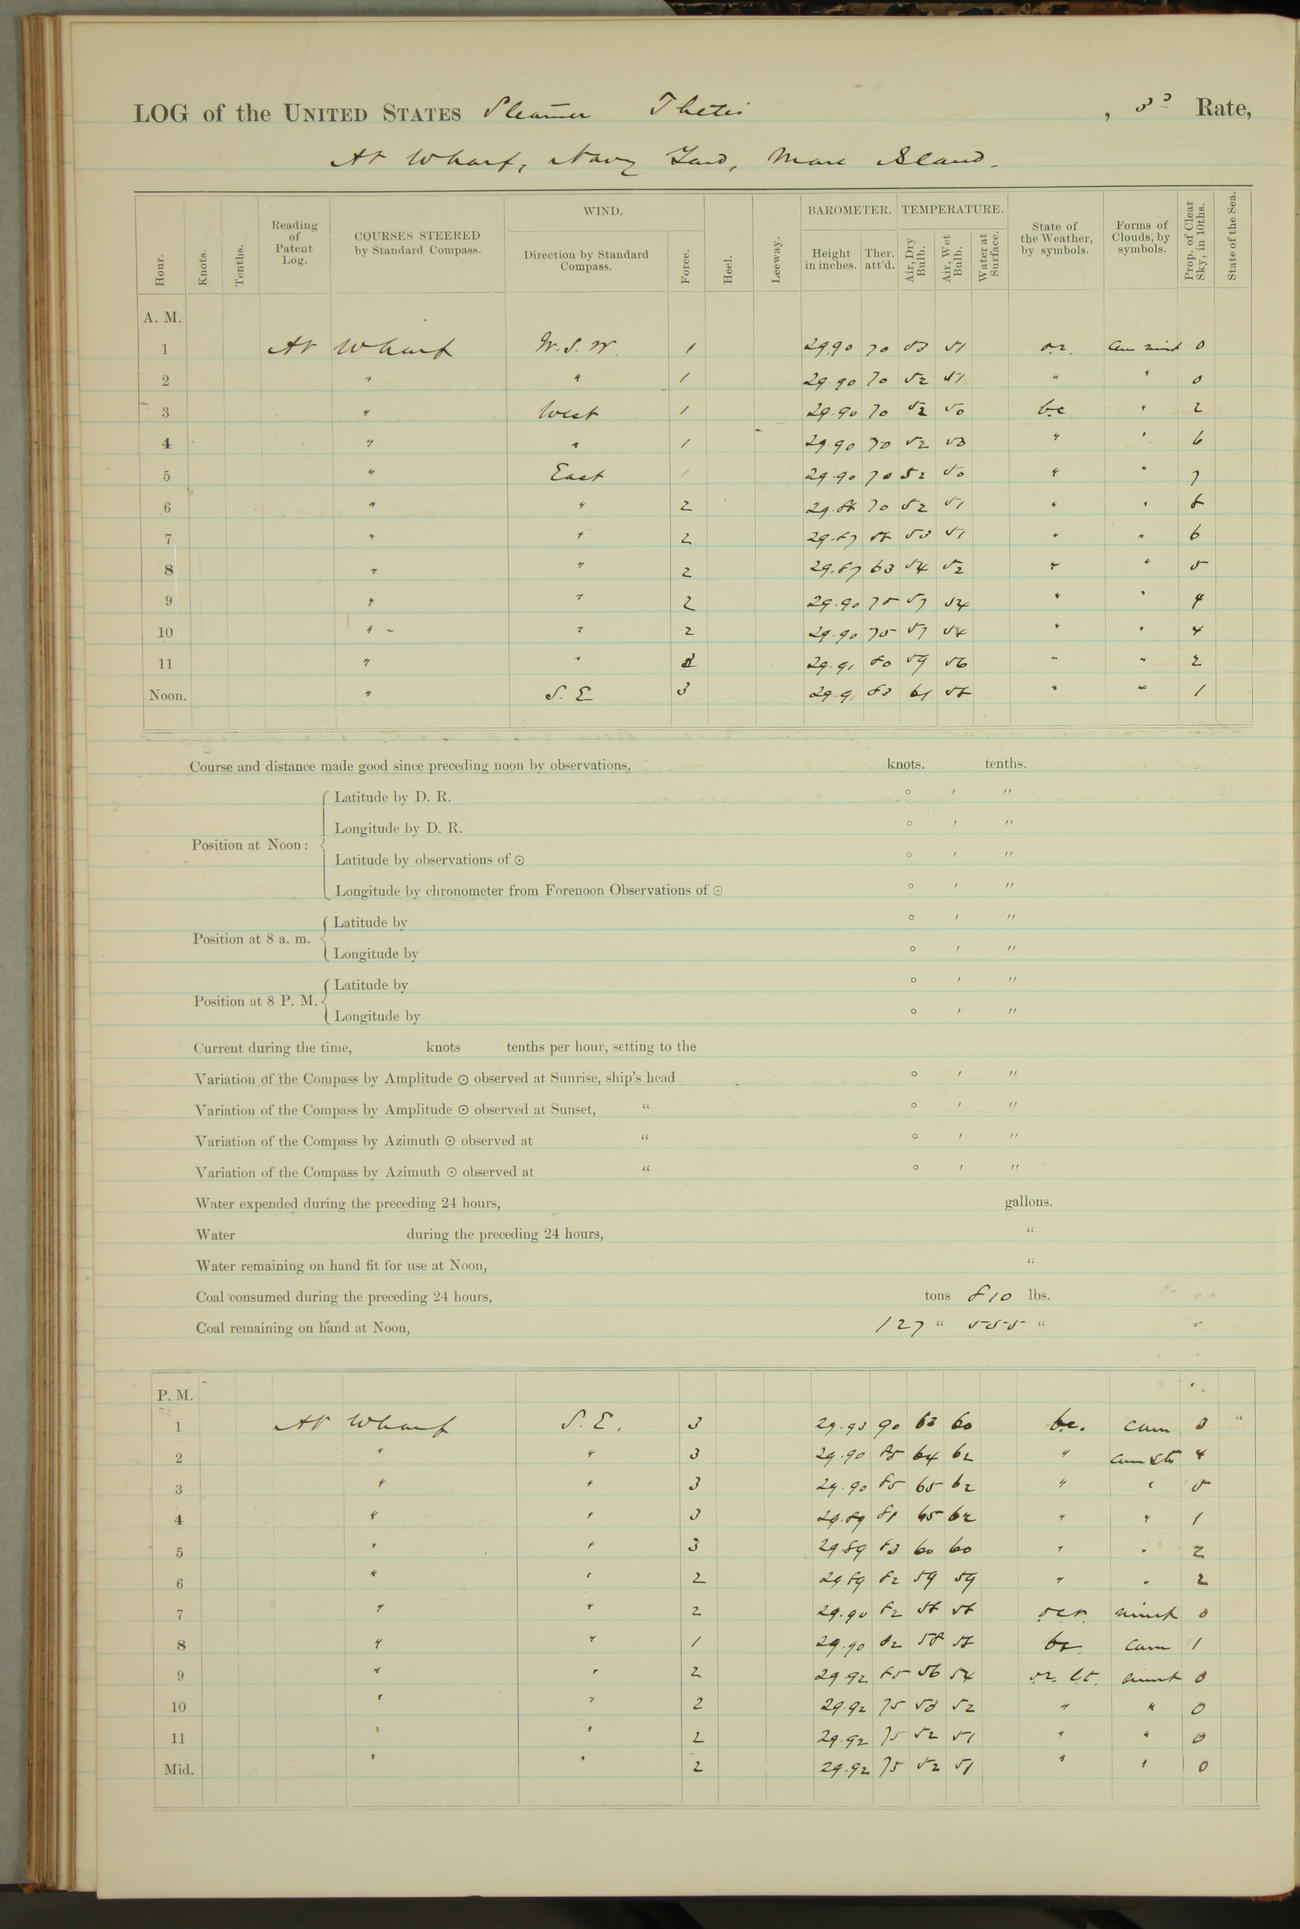 LOG of the UNITED STATES Steamer Thetis, 3d Rate,
At Wharf, Navy Yard, Mare Island.
Hour. Knots. Tenths. Reading of Patent Log. COURSES STEERED by Standard Compass. WIND. Direction by Standard Compass. Force. Heel. Leeway. BAROMETER. Height in inches. Ther. att'd. TEMPERATURE. Air, Dry Bulb. Air, Wet Bulb. Water at Surface. State of the Weather, by symbols. Forms of Clouds, by symbols. Prop. of Clear Sky, in 10ths. State of the Sea.
A. M.
1 At Wharf W.S.W. 1 29.90 70 53 51 o.r. cum nimb 0
2 " " 1 29.90 70 52 51 " " 0
3 " West 1 29.90 70 52 50 b.c. " 2
4 " " 1 29.90 70 52 50 " " 6
5 " East 1 29.90 70 52 50 " " 7
6 " " 2 29.88 70 52 51 " " 8
7 " " 2 29.87 58 53 51 " " 6
8 " " 2 29.87 63 54 52 " " 5
9 " " 2 29.90 75 57 54 " " 4
10 " " 2 29.90 75 57 54 " " 4
11 " " 29.91 80 59 56 " " 2
Noon. " S.E 3 29.91 83 61 58 " " 1
Course and distance made good since preceding noon by observations, knots. tenths.
Position at Noon: Latitude by D. R. ° ′ ″
Longitude by D. R. ° ′ ″
Latitude by observations of ☉ ° ′ ″
Longitude by chronometer from Forenoon Observations of ☉ ° ′ ″
Position at 8 a. m. Latitude by ° ′ ″
Longitude by ° ′ ″
Position at 8 P. M. Latitude by ° ′ ″
Longitude by ° ′ ″
Current during the time, knots tenths per hour, setting to the
Variation of the Compass by Amplitude ☉ observed at Sunrise, ship's head ° ′ ″
Variation of the Compass by Amplitude ☉ observed at Sunset, " ° ′ ″
Variation of the Compass by Azimuth ☉ observed at " ° ′ ″
Variation of the Compass by Azimuth ☉ observed at " ° ′ ″
Water expended during the preceding 24 hours, gallons.
Water during the preceding 24 hours, "
Water remaining on hand fit for use at Noon, "
Coal consumed during the preceding 24 hours, tons 810 lbs.
Coal remaining on hand at Noon, 127 " 555 "
P. M.
1 At Wharf S.E. 3 29.93 90 63 60 b.c. cum 3 "
2 " " 3 29.90 85 64 62 " cum str 4
3 " " 3 29.90 85 65 62 " " 5
4 " " 3 29.89 81 65 62 " " 1
5 " " 3 29.89 83 60 60 " " 2
6 " " 2 29.89 82 59 59 " " 2
7 " " 2 29.90 82 58 58 nimb 0
8 " " 1 29.90 82 58 58 b.c. cum 1
9 " " 2 29.92 85 56 54 o.r. l.t. nimb 0
10 " " 2 29.92 75 53 52 " " 0
11 " " 2 29.92 75 52 51 " " 0
Mid. " " 2 29.92 75 52 51 " " 0